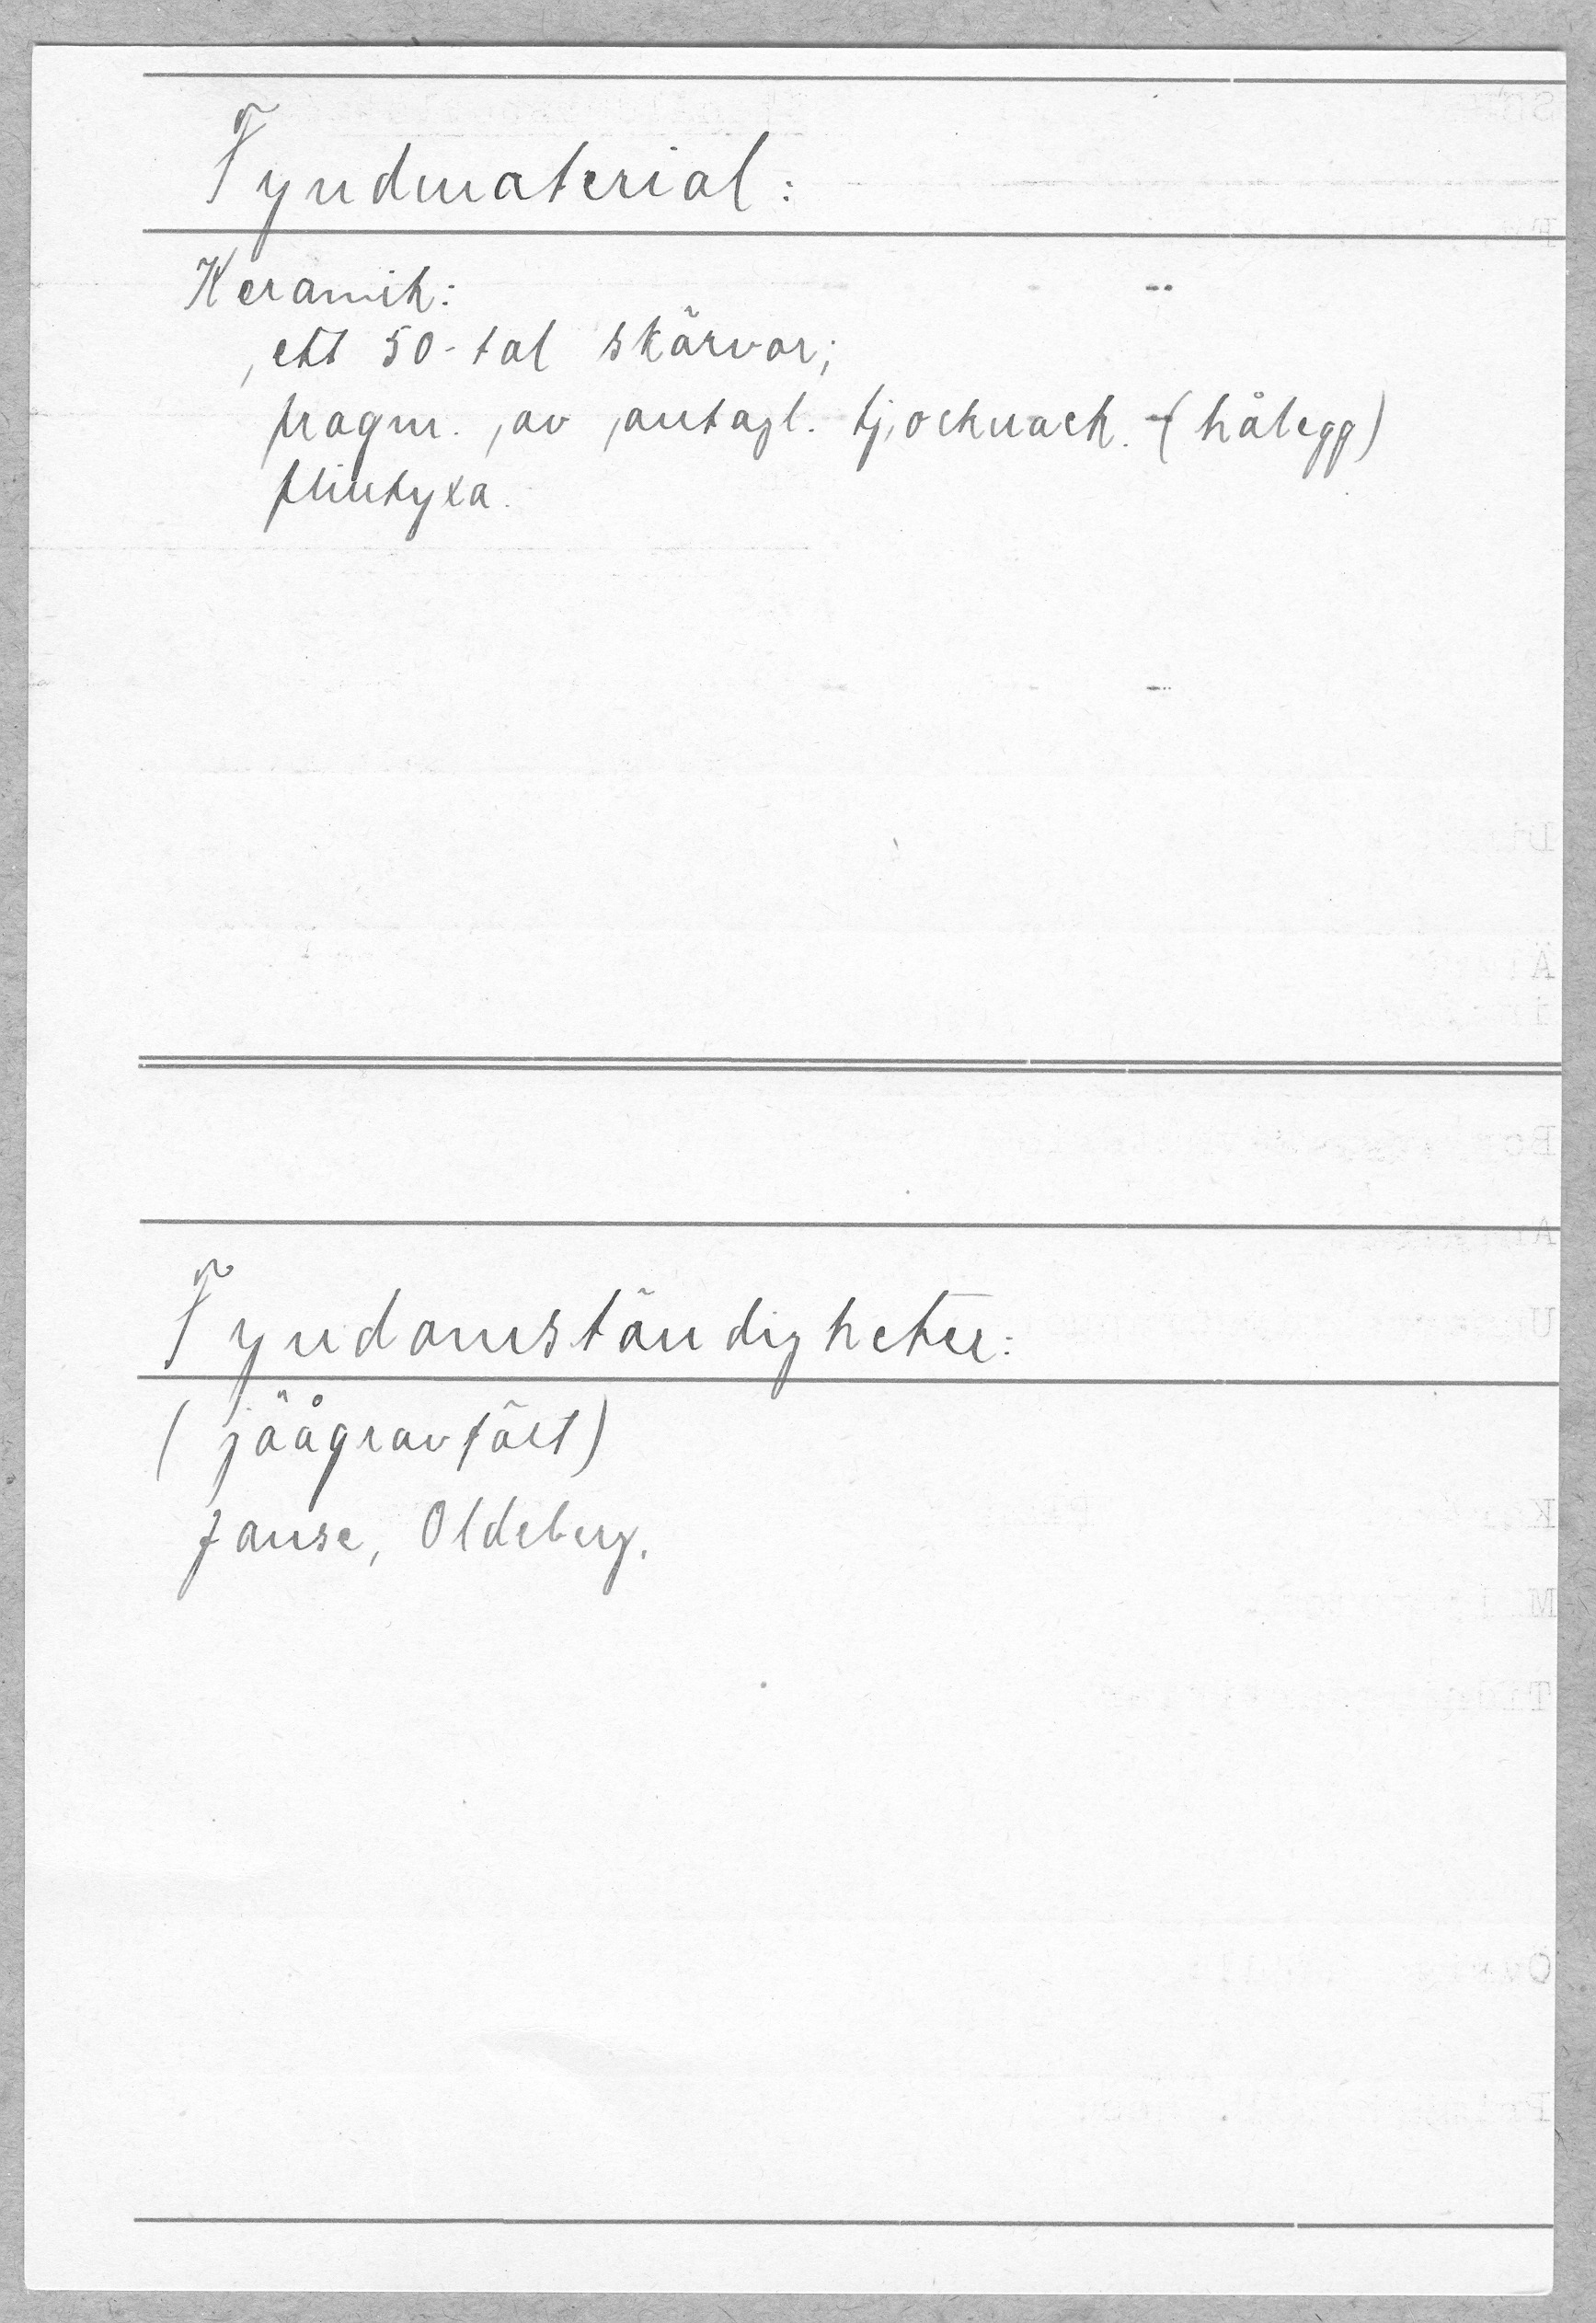 Fyndmaterial:
Keramik:
ett 50-tal skärvor;
fragm. av antagl. tjocknack. (hålegg)
flintyxa.
Fyndomständigheter:
(jäågravfält)
Janse, Oldeberg.